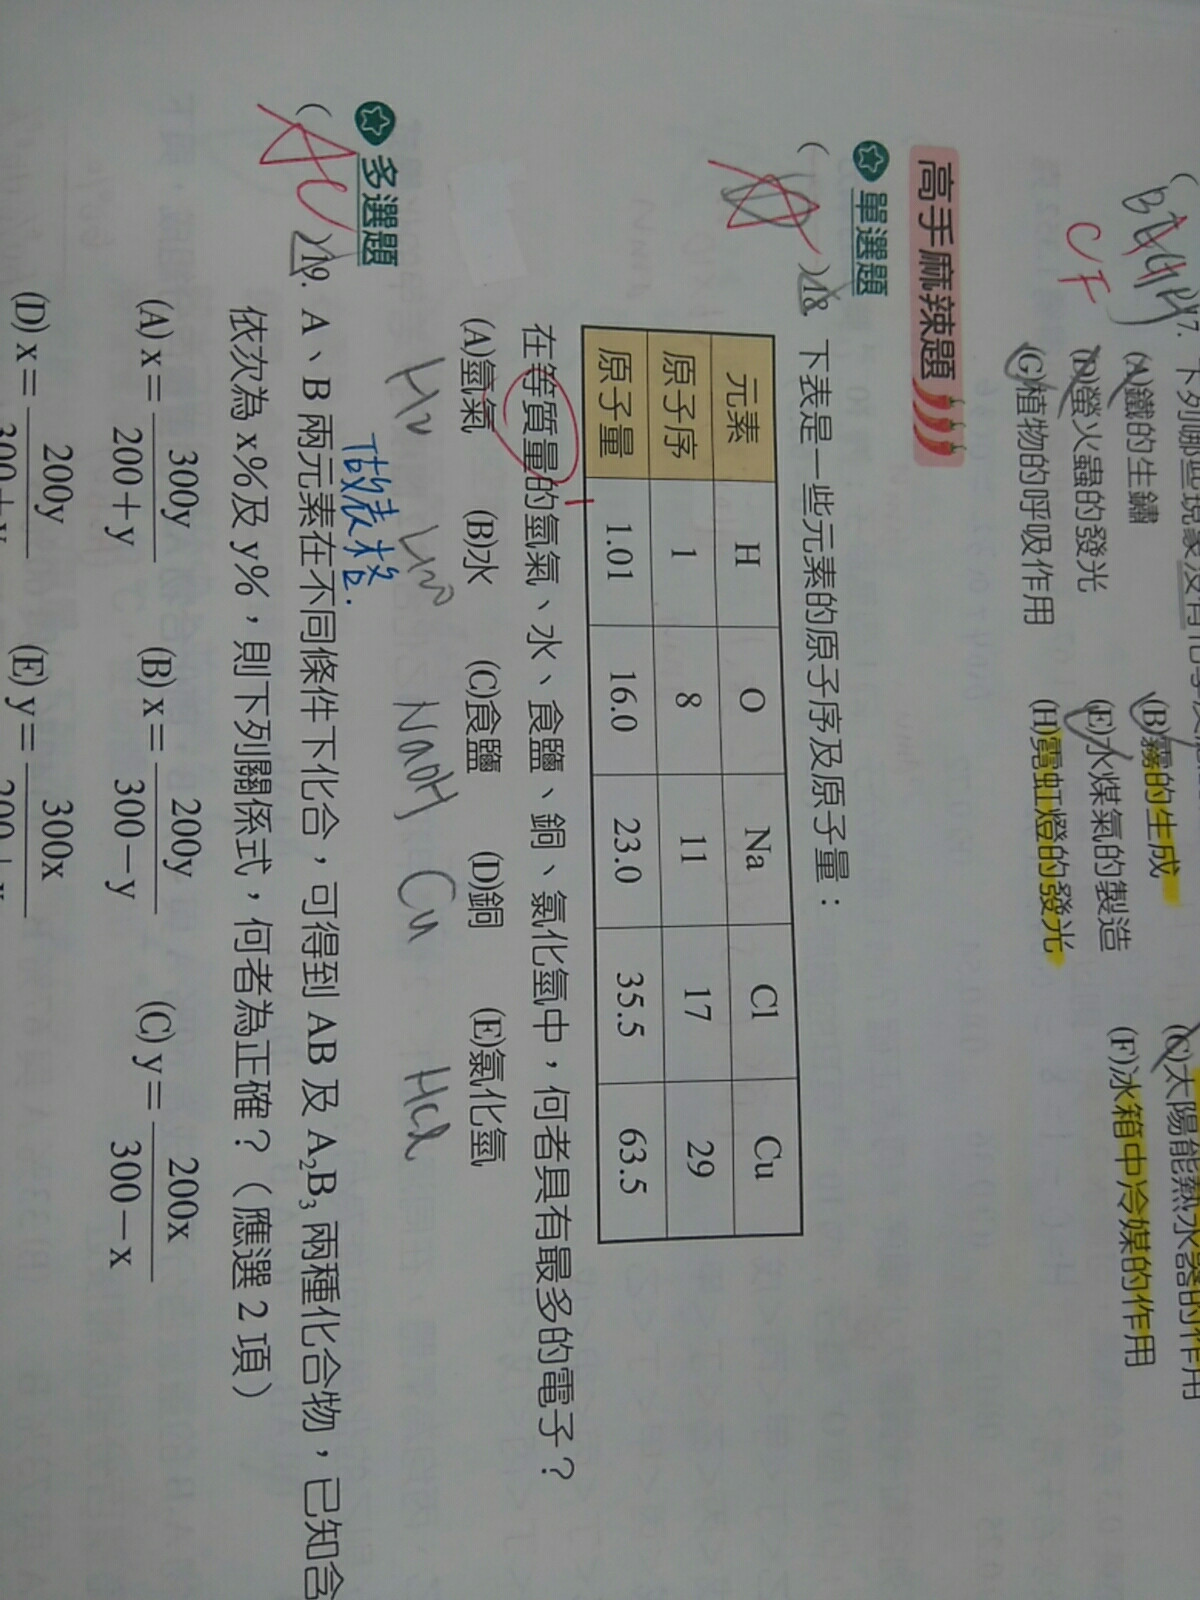 (A)鐵的生鏽 (B)霧的生成 (C)太陽能熱水器的作用
(D)螢火蟲的發光 (E)水煤氣的製造 (F)冰箱中冷媒的作用
(G)植物的呼吸作用 (H)霓虹燈的發光
CF
高手麻辣題
單選題
( )18. 下表是一些元素的原子序及原子量：
元素 H O Na Cl Cu
原子序 1 8 11 17 29
原子量 1.01 16.0 23.0 35.5 63.5
在等質量的氫氣、水、食鹽、銅、氯化氫中，何者具有最多的電子？
(A)氫氣 (B)水 (C)食鹽 (D)銅 (E)氯化氫
NaOH Cu HCl
多選題
做表格.
(AC)19. A、B 兩元素在不同條件下化合，可得到 AB 及 A₂B₃ 兩種化合物，已知含
依次為 x%及 y%，則下列關係式，何者為正確？（應選 2 項）
(A) x = 300y / 200 + y (B) x = 200y / 300 − y (C) y = 200x / 300 − x
(D) x = 200y (E) y = 300x